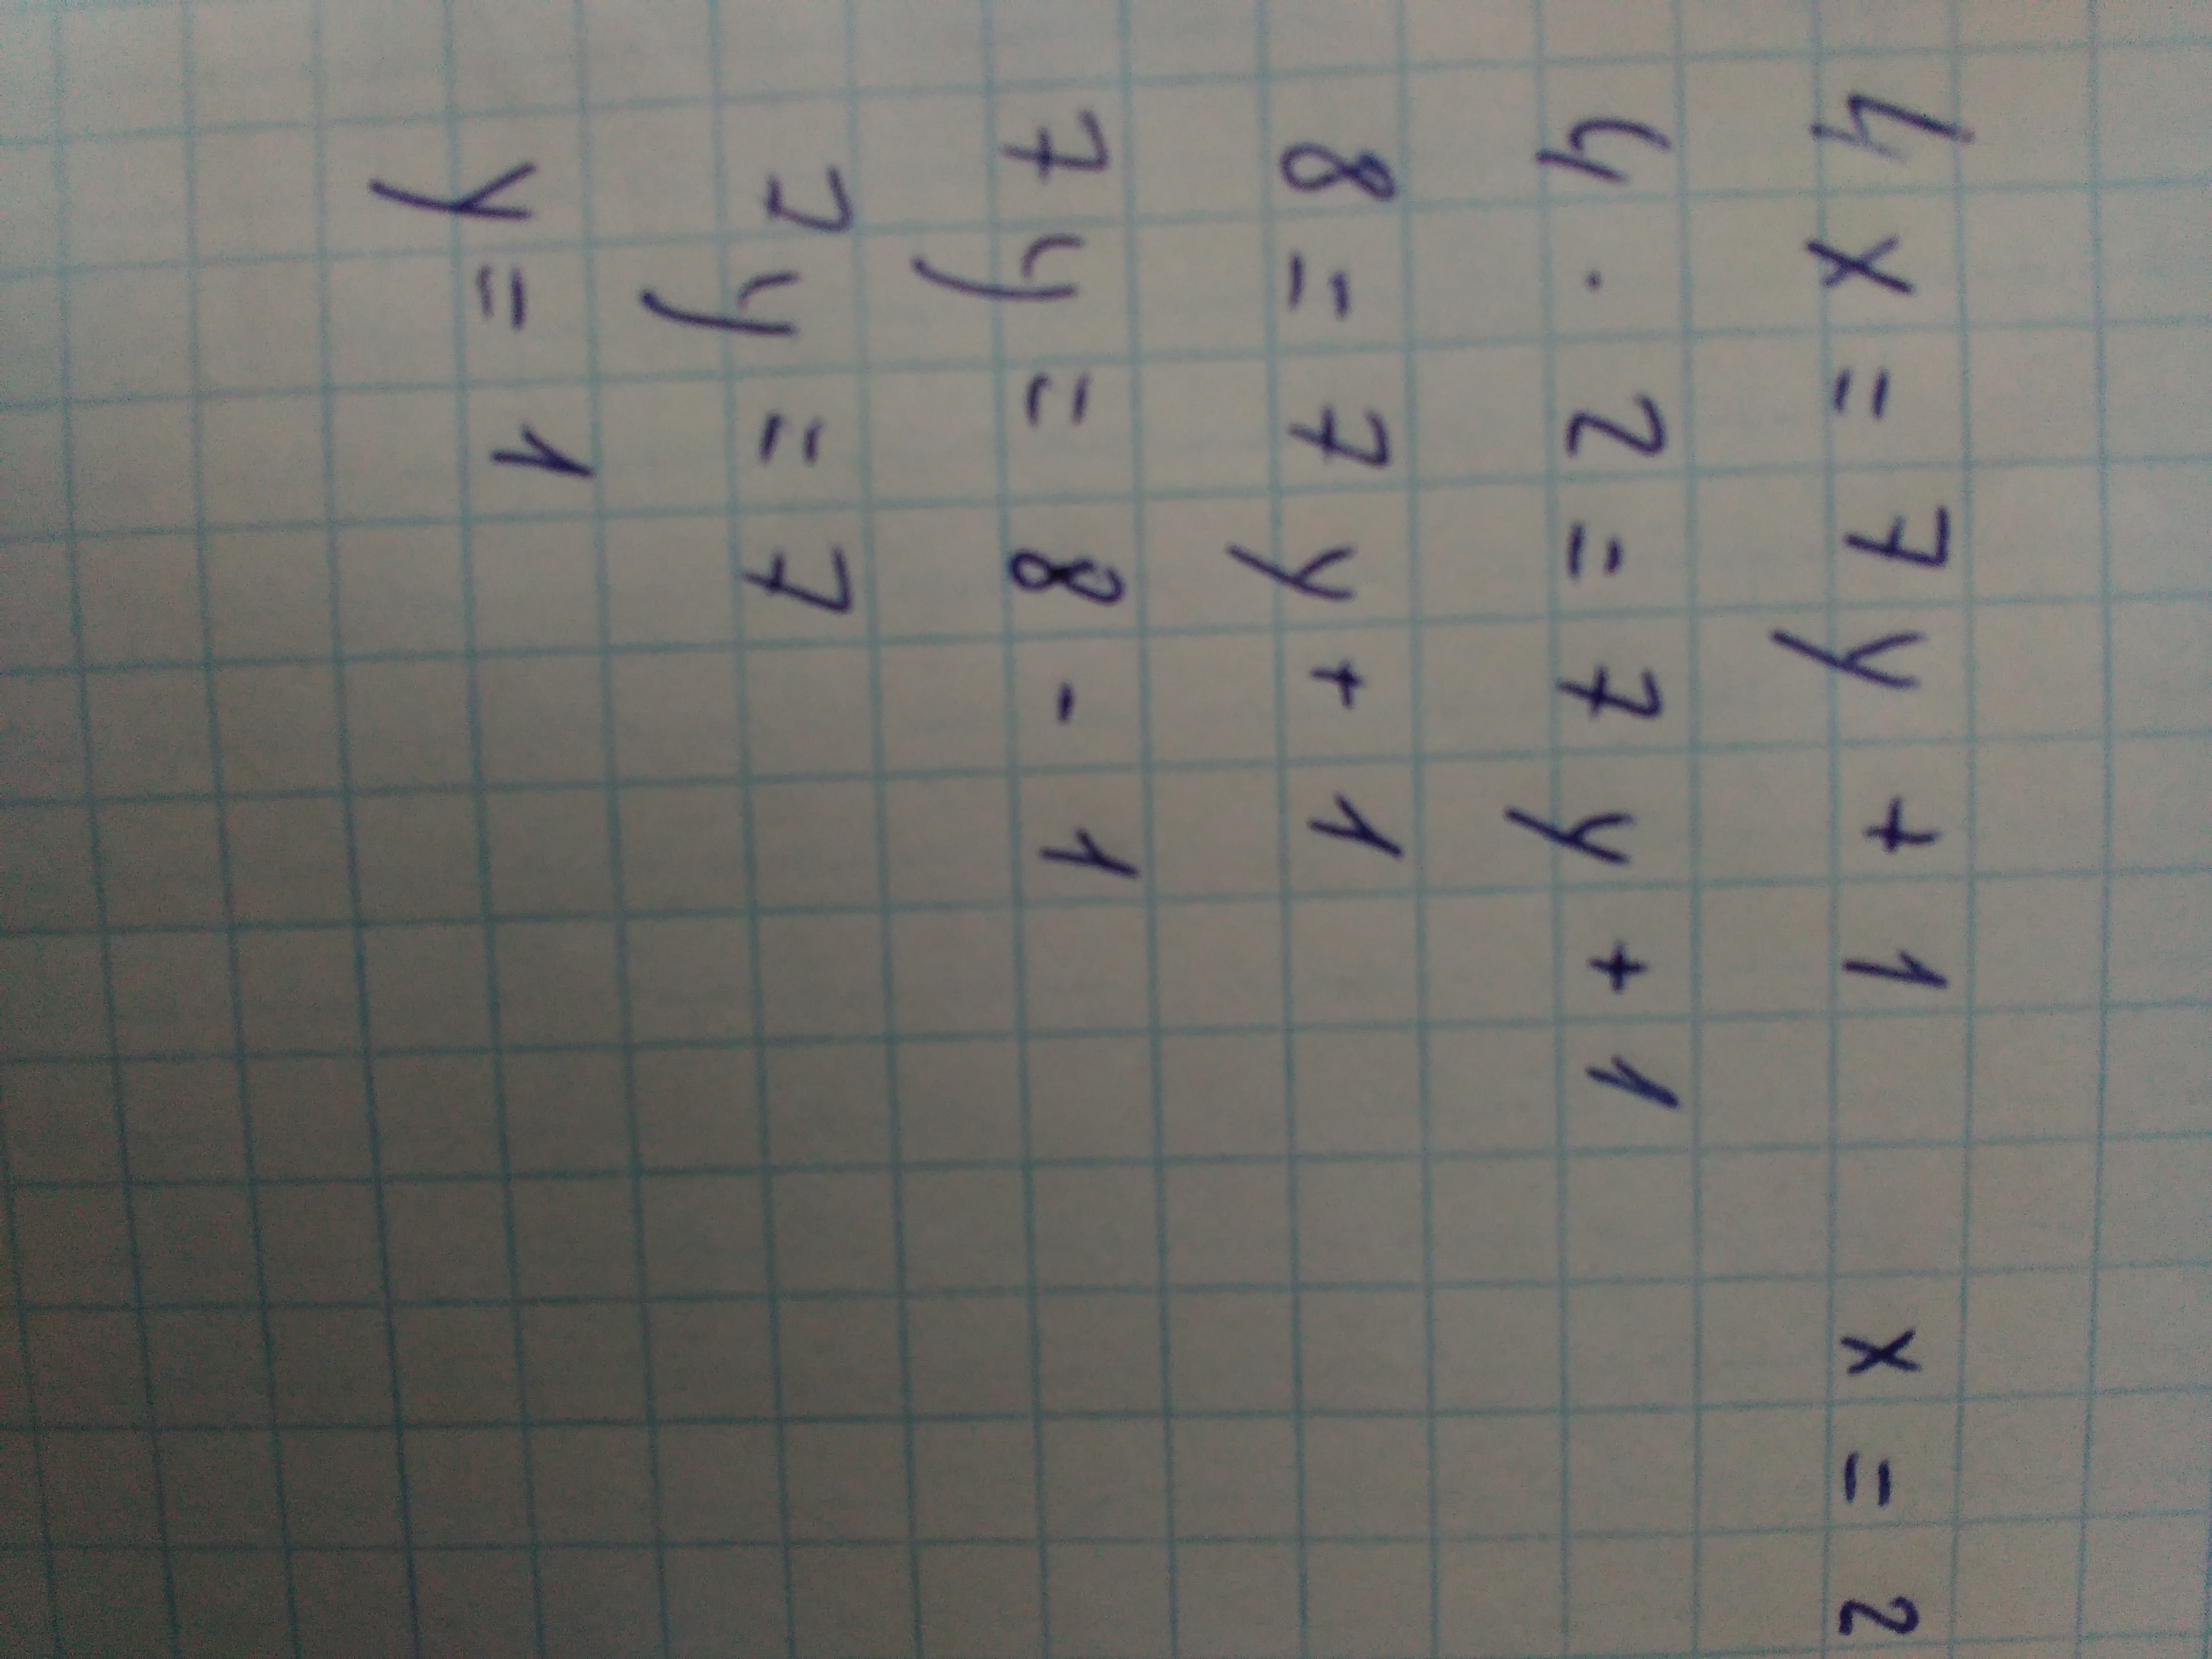 4x = 7y + 1 x = 2
4 · 2 = 7y + 1
8 = 7y + 1
7y = 8 - 1
7y = 7
y = 1